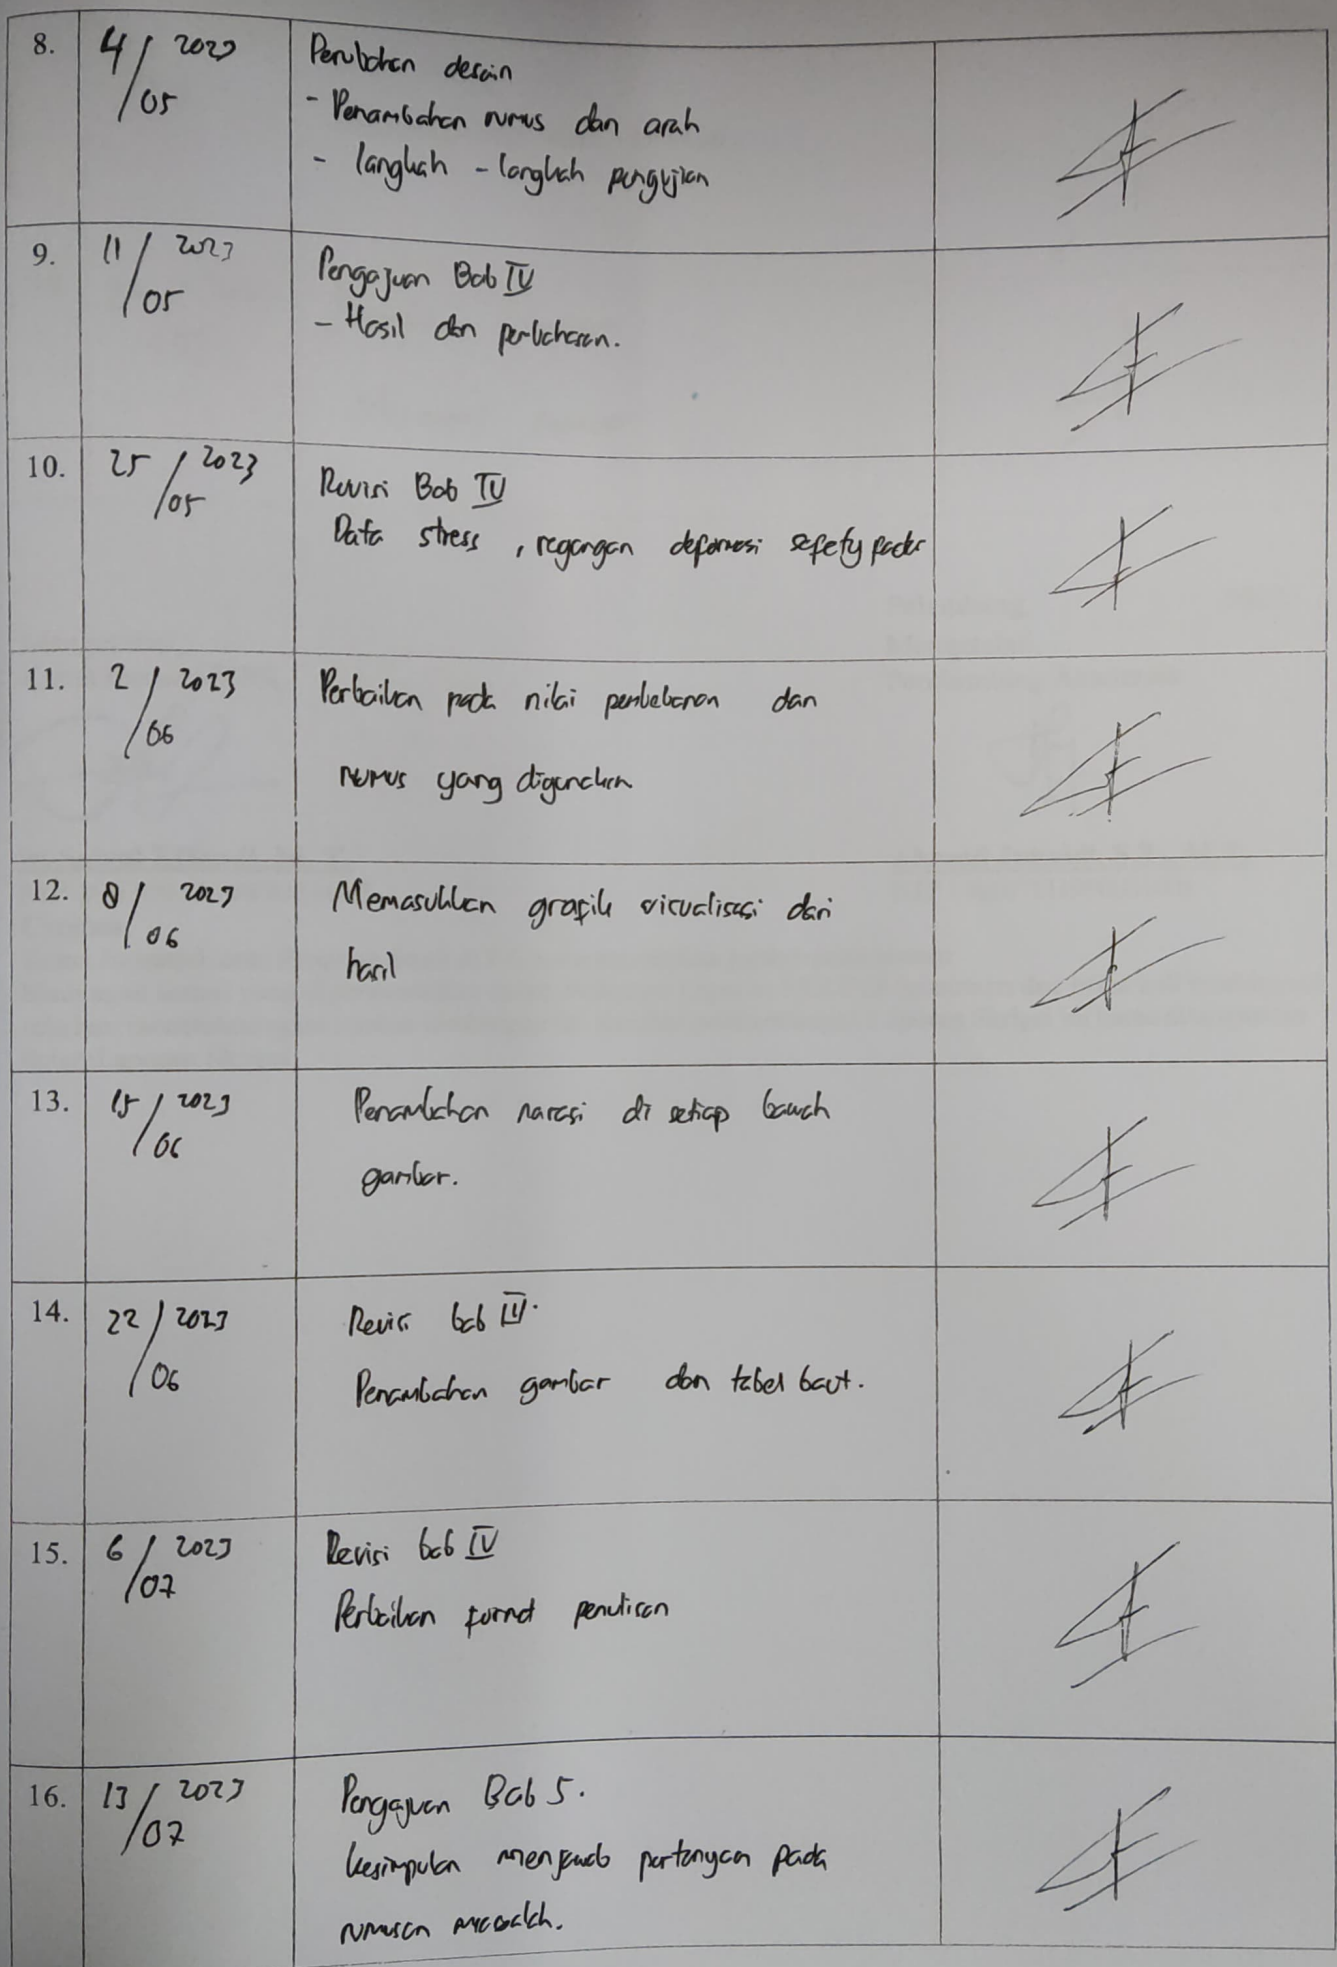 8. 4/05 2023 Perubahan desain
- Penambahan rumus dan arah
- langkah - langkah pengujian
9. 11/05 2023 Pengajuan Bab IV
- Hasil dan pembahasan.
10. 25/05 2023 Revisi Bab IV
Data stress, regangan deformasi safety factor
11. 2/06 2023 Perbaikan pada nilai pembebanan dan
rumus yang digunakan
12. 8/06 2023 Memasukkan grafik visualisasi dari
hasil
13. 15/06 2023 Penambahan narasi di setiap bawah
gambar.
14. 22/06 2023 Revisi bab IV.
Penambahan gambar dan tabel baut.
15. 6/07 2023 Revisi bab IV
Perbaikan format penulisan
16. 13/07 2023 Pengajuan Bab 5.
kesimpulan menjawab pertanyaan pada
rumusan masalah.